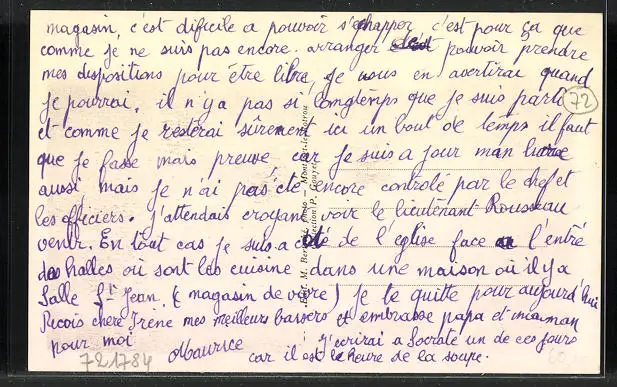 magasin, c'est dificile a pouvoir s'echapper, c'est pour ça que
comme je ne suis pas encore arranger pouvoir prendre
mes dispositions pour être libre, je vous en avertirai quand
je pourrai, il n'y a pas si longtemps que je suis parti
72
et comme je resterai sûrement ici un bout de temps il faut
que je fasse mais preuve car je suis a jour man livre
aussi mais je n'ai pas été encore controlé par le chef et
les officiers. j'attendais croyant voir le lieutenant Rousseau
venir. En tout cas je suis a côté de l'eglise face a l'entré
des halles où sont les cuisine dans une maison où il y a
Salle St Jean. (magasin de vivre) Je te quitte pour aujourd'hui
Recois chere Irène mes meilleurs baisers et embrasse papa et maman
pour moi
Maurice
j'ecrirai a Socrate un de ces jours
car il est le heure de la soupe.
721784